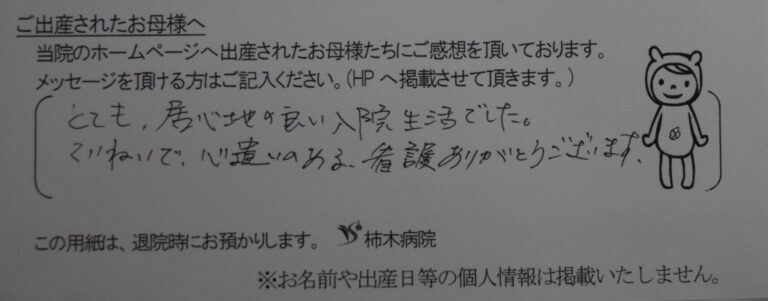 ご出産されたお母様へ
当院のホームページへ出産されたお母様たちにご感想を頂いております。
メッセージを頂ける方はご記入ください。(HPへ掲載させて頂きます。)
とても、居心地の良い入院生活でした。
ていねいで、心遣いのある、看護ありがとうございます。
この用紙は、退院時にお預かりします。 柿木病院
※お名前や出産日等の個人情報は掲載いたしません。